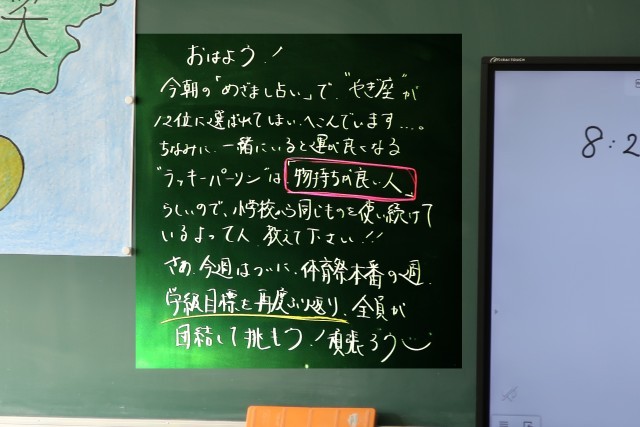 笑
おはよう!
今朝の「めざまし占い」で、"やぎ座"が
12位に選ばれてしまい、へこんでいます…。
ちなみに、一緒にいると運が良くなる
"ラッキーパーソン"は、「物持ちが良い人」
らしいので、小学校から同じものを使い続けて
いるよって人、教えて下さい!!
さあ、今週はついに、体育祭本番の週。
学級目標を再度ふり返り、全員が
団結して挑もう!頑張ろう
8:2